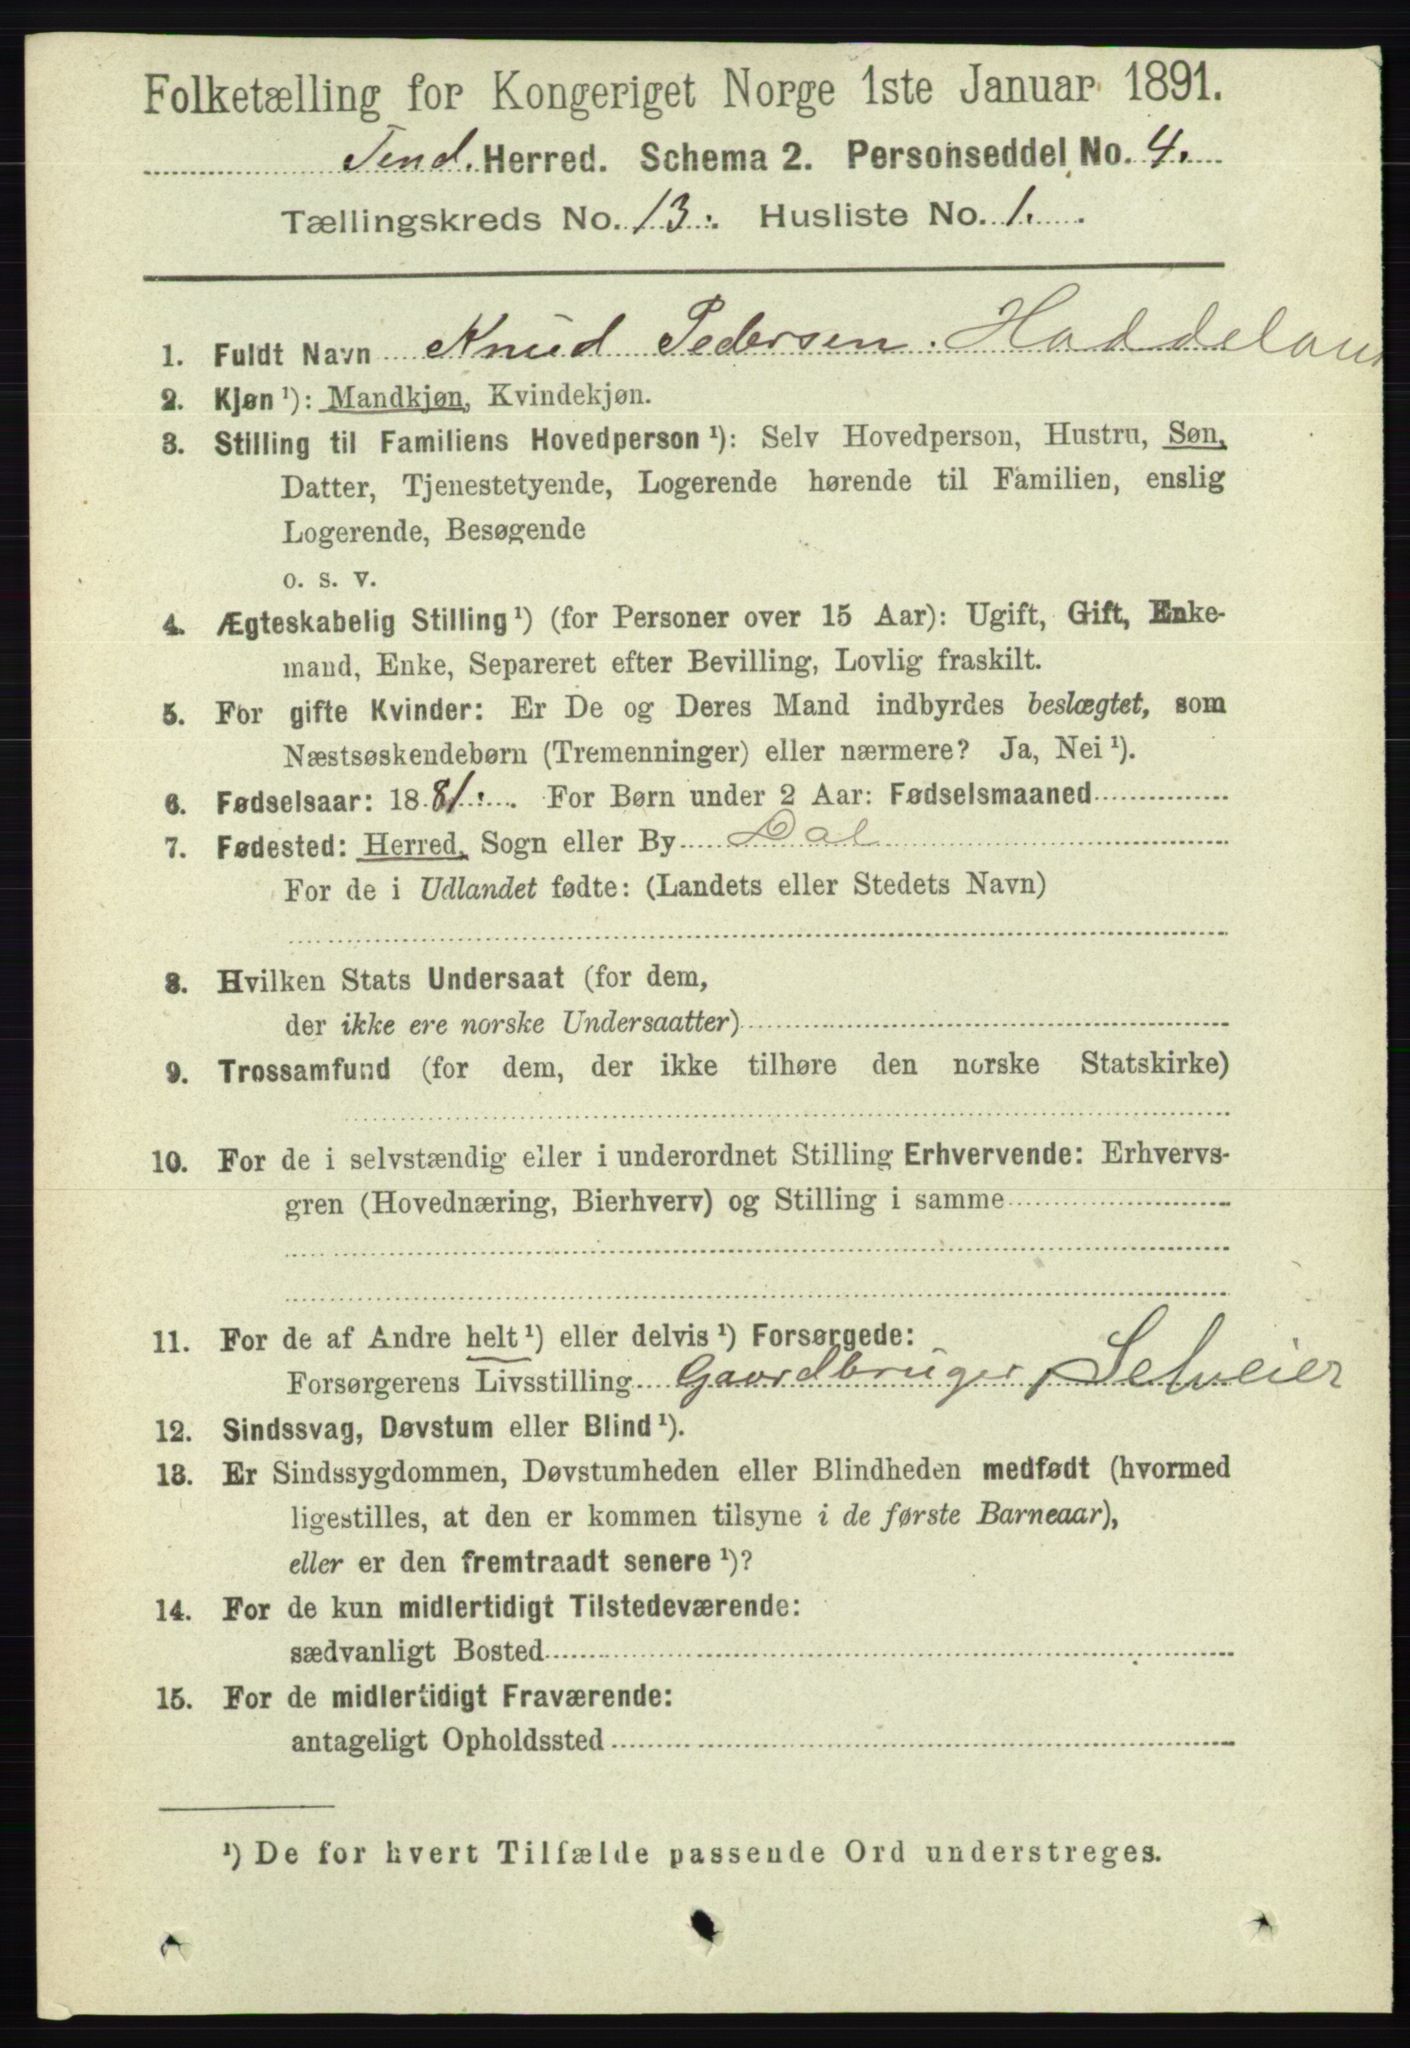 Folketælling for Kongeriget Norge 1ste Januar 1891.
Tind. Herred. Schema 2. Personseddel No. 4.
Tællingskreds No. 13. Husliste No. 1.
1. Fuldt Navn Knud Pedersen. Haddeland
2. Kjøn ¹): Mandkjøn, Kvindekjøn.
3. Stilling til Familiens Hovedperson ¹): Selv Hovedperson, Hustru, Søn,
Datter, Tjenestetyende, Logerende hørende til Familien, enslig
Logerende, Besøgende
o. s. v.
4. Ægteskabelig Stilling ¹) (for Personer over 15 Aar): Ugift, Gift, Enke-
mand, Enke, Separeret efter Bevilling, Lovlig fraskilt.
5. For gifte Kvinder: Er De og Deres Mand indbyrdes beslægtet, som
Næstsøskendebørn (Tremenninger) eller nærmere? Ja, Nei ¹).
6. Fødselsaar: 1881. For Børn under 2 Aar: Fødselsmaaned
7. Fødested: Herred, Sogn eller By Dal
For de i Udlandet fødte: (Landets eller Stedets Navn)
8. Hvilken Stats Undersaat (for dem,
der ikke ere norske Undersaatter)
9. Trossamfund (for dem, der ikke tilhøre den norske Statskirke)
10. For de i selvstændig eller i underordnet Stilling Erhvervende: Erhvervs-
gren (Hovednæring, Bierhverv) og Stilling i samme
11. For de af Andre helt ¹) eller delvis ¹) Forsørgede:
Forsørgerens Livsstilling Gaardbruger, Selveier
12. Sindssvag, Døvstum eller Blind ¹).
13. Er Sindssygdommen, Døvstumheden eller Blindheden medfødt (hvormed
ligestilles, at den er kommen tilsyne i de første Barneaar),
eller er den fremtraadt senere ¹)?
14. For de kun midlertidigt Tilstedeværende:
sædvanligt Bosted
15. For de midlertidigt Fraværende:
antageligt Opholdssted
¹) De for hvert Tilfælde passende Ord understreges.